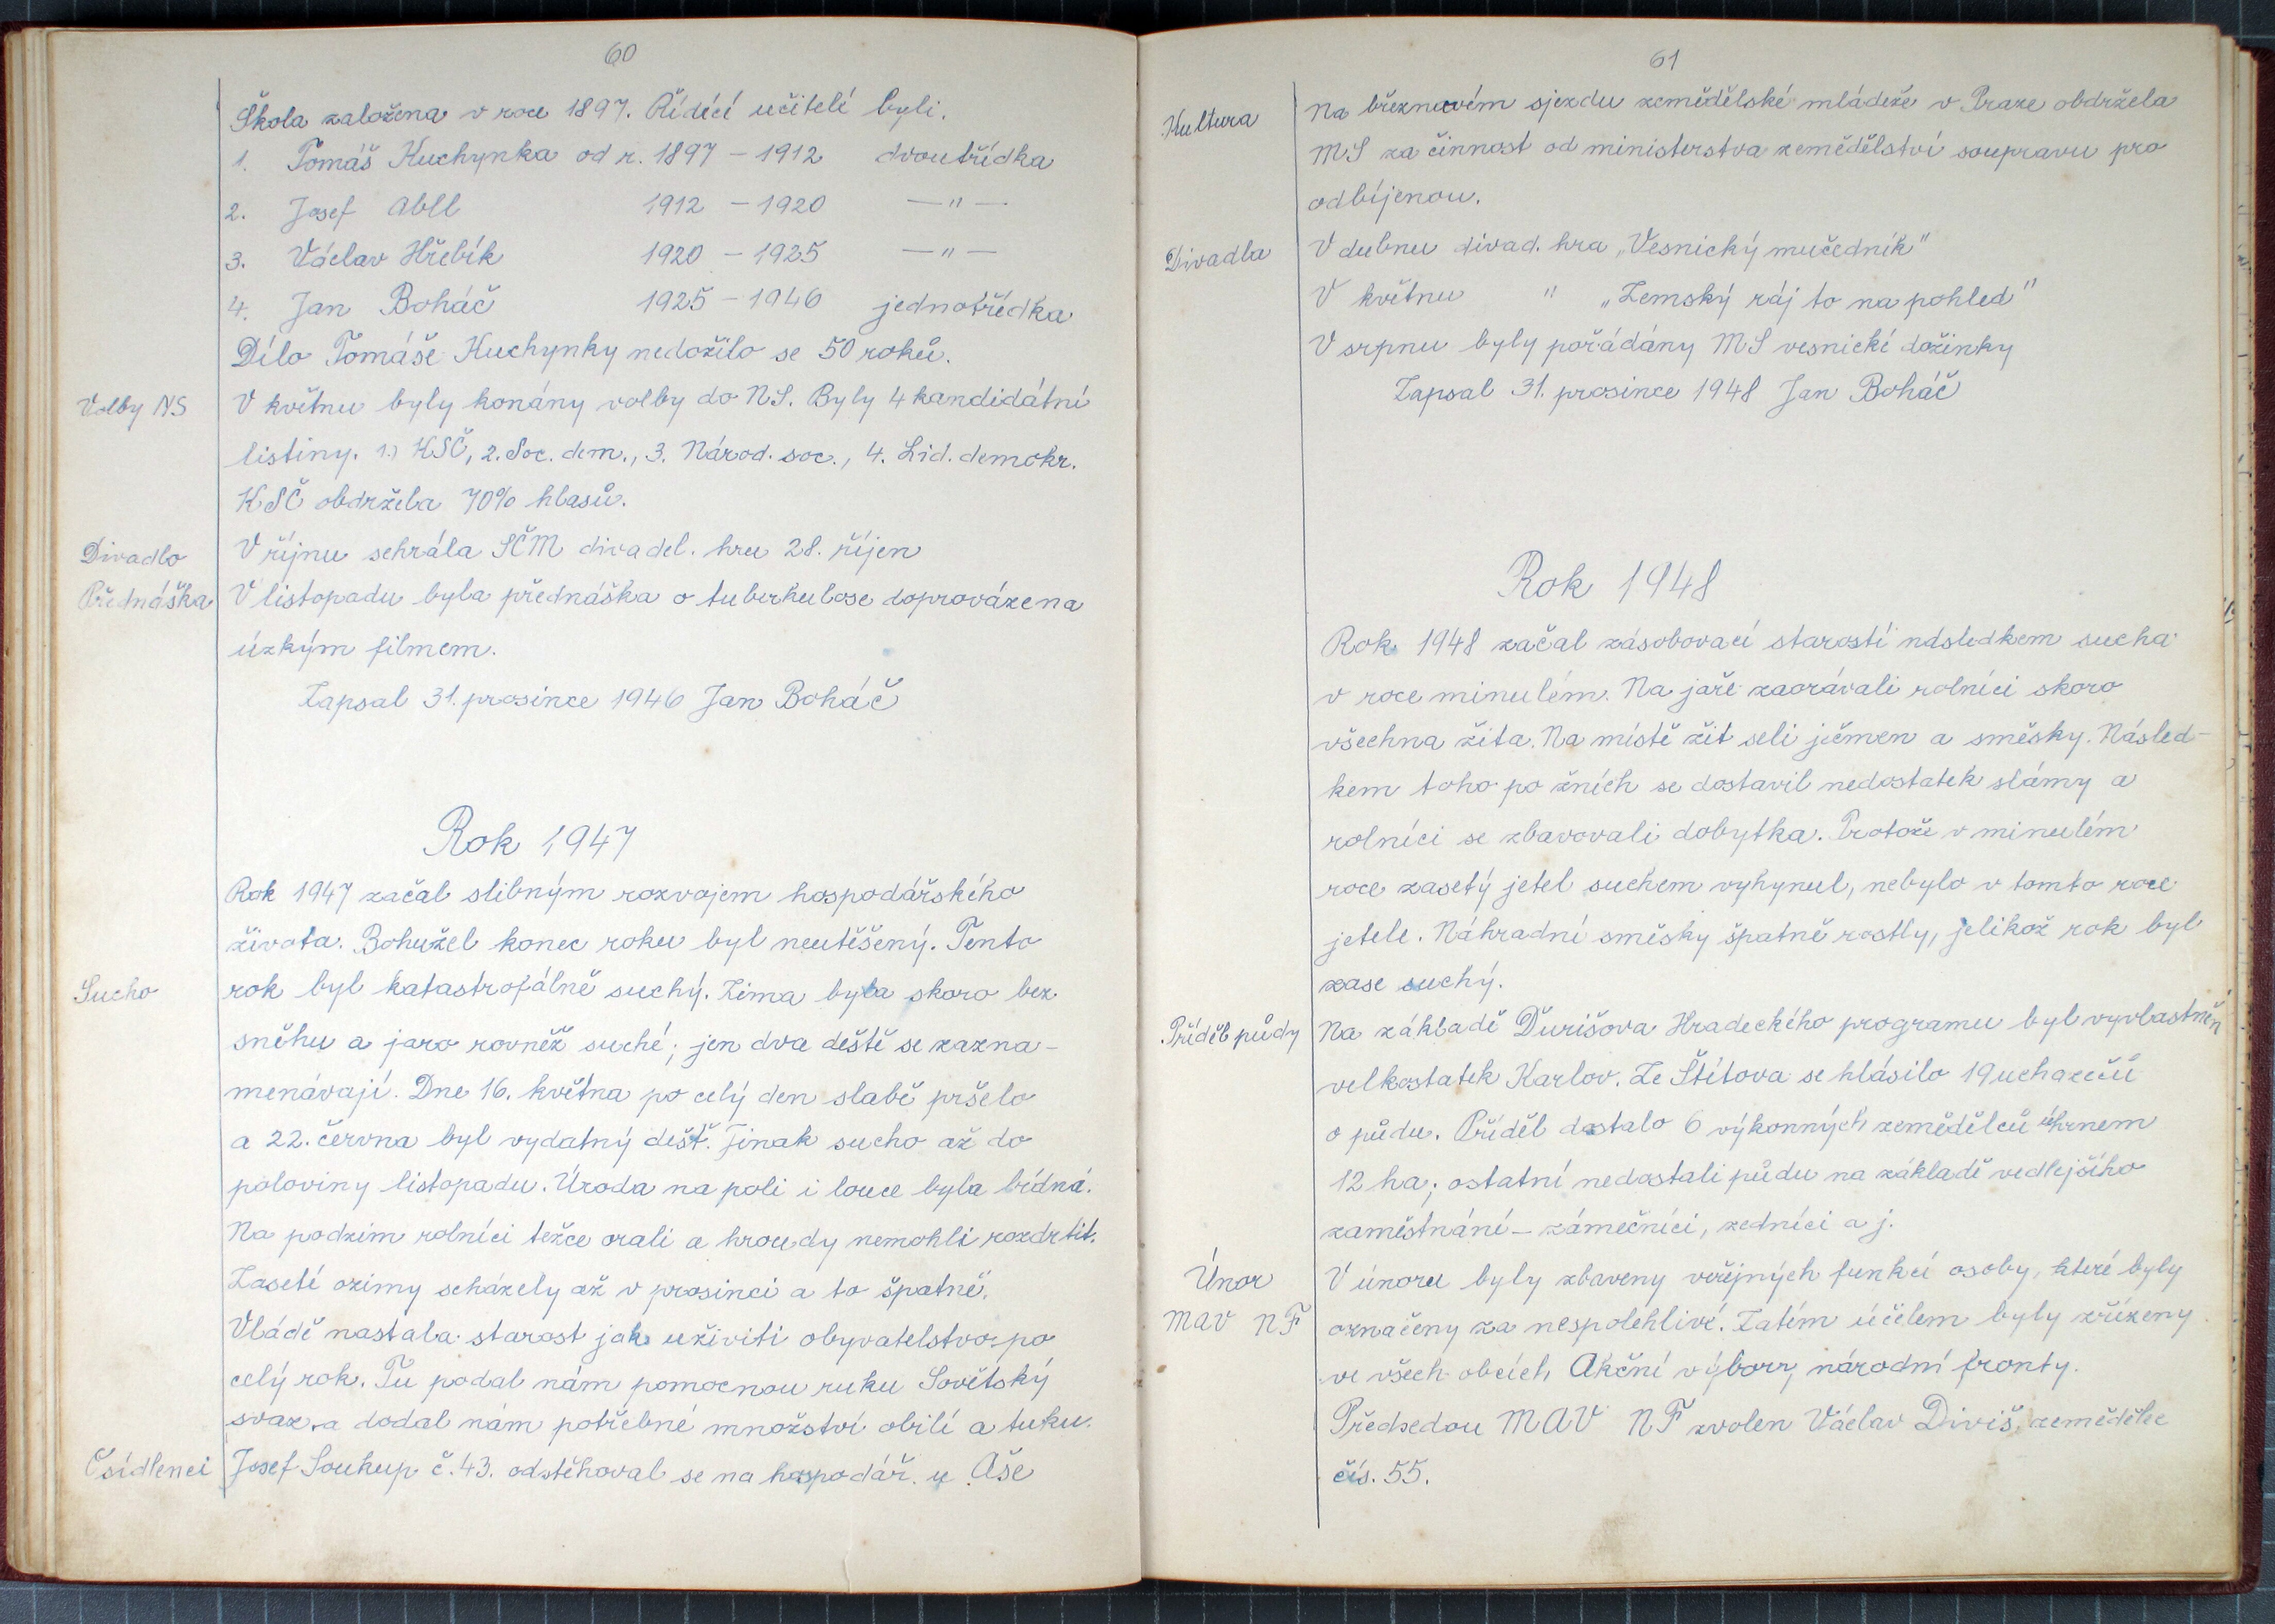 60
Škola založena v roce 1897. Řídící učitelé byli.
1. Tomáš Kuchynka od r. 1897 – 1912 dvoutřídka
2. Josef Abll 1912 – 1920 — " —
3. Václav Hřebík 1920 – 1925 — " —
4. Jan Boháč 1925 – 1946 jednotřídka
Dílo Tomáše Kuchynky nedožilo se 50 roků.
Volby NS V květnu byly konány volby do NS. Byly 4 kandidátní
listiny. 1.) KSČ, 2. Soc. dem., 3. Národ. soc., 4. Lid. demokr.
KSČ obdržela 70% hlasů.
Divadlo V říjnu sehrála SČM divadel. hru 28. říjen
Přednáška V listopadu byla přednáška o tuberkulose doprovázena
úzkým filmem.
Zapsal 31. prosince 1946 Jan Boháč
Rok 1947
Rok 1947 začal slibným rozvojem hospodářského
života. Bohužel konec roku byl neutěšený. Tento
Sucho rok byl katastrofálně suchý. Zima byla skoro bez
sněhu a jaro rovněž suché; jen dva deště se zazna-
menávají. Dne 16. května po celý den slabě pršelo
a 22. června byl vydatný dešť. Jinak sucho až do
poloviny listopadu. Úroda na poli i louce byla bídná.
Na podzim rolníci težce orali a hroudy nemohli rozdrtit.
Zaseté ozimy scházely až v prosinci a to špatně.
Vládě nastala starost jak uživiti obyvatelstvo po
celý rok. Tu podal nám pomocnou ruku Sovětský
svaz a dodal nám potřebné množství obilí a tuku.
Osídlenci Josef Soukup č. 43. odstěhoval se na hospodář. u Aše
61
Kultura Na březnovém sjezdu zemědělské mládeže v Praze obdržela
MS za činnost od ministerstva zemědělství soupravu pro
odbíjenou.
Divadla V dubnu divad. hra „Vesnický mučedník"
V květnu " „Zemský ráj to na pohled"
V srpnu byly pořádány MS vesnické dožinky
Zapsal 31. prosince 1948 Jan Boháč
Rok 1948
Rok 1948 začal zásobovací starostí následkem sucha
v roce minulém. Na jaře zaorávali rolníci skoro
všechna žita. Na místě žit seli ječmen a směsky. Násled-
kem toho po žních se dostavil nedostatek slámy a
rolníci se zbavovali dobytka. Protože v minulém
roce zasetý jetel suchem vyhynul, nebylo v tomto roce
jetele. Náhradní směsky špatně rostly, jelikož rok byl
zase suchý.
Příděl půdy Na základě Ďurišova Hradeckého programu byl vyvlastněn
velkostatek Karlov. Ze Štítova se hlásilo 19 uchazečů
o půdu. Příděl dostalo 6 výkonných zemědělců úhrnem
12 ha; ostatní nedostali půdu na základě vedlejšího
zaměstnání – zámečníci, zedníci a j.
Únor V únoru byly zbaveny veřejných funkcí osoby, které byly
MAV NF označeny za nespolehlivé. Zatím účelem byly zřízeny
ve všech obcích Akční výbory národní fronty.
Předsedou MAV NF zvolen Václav Diviš, zemědělec
čís. 55.